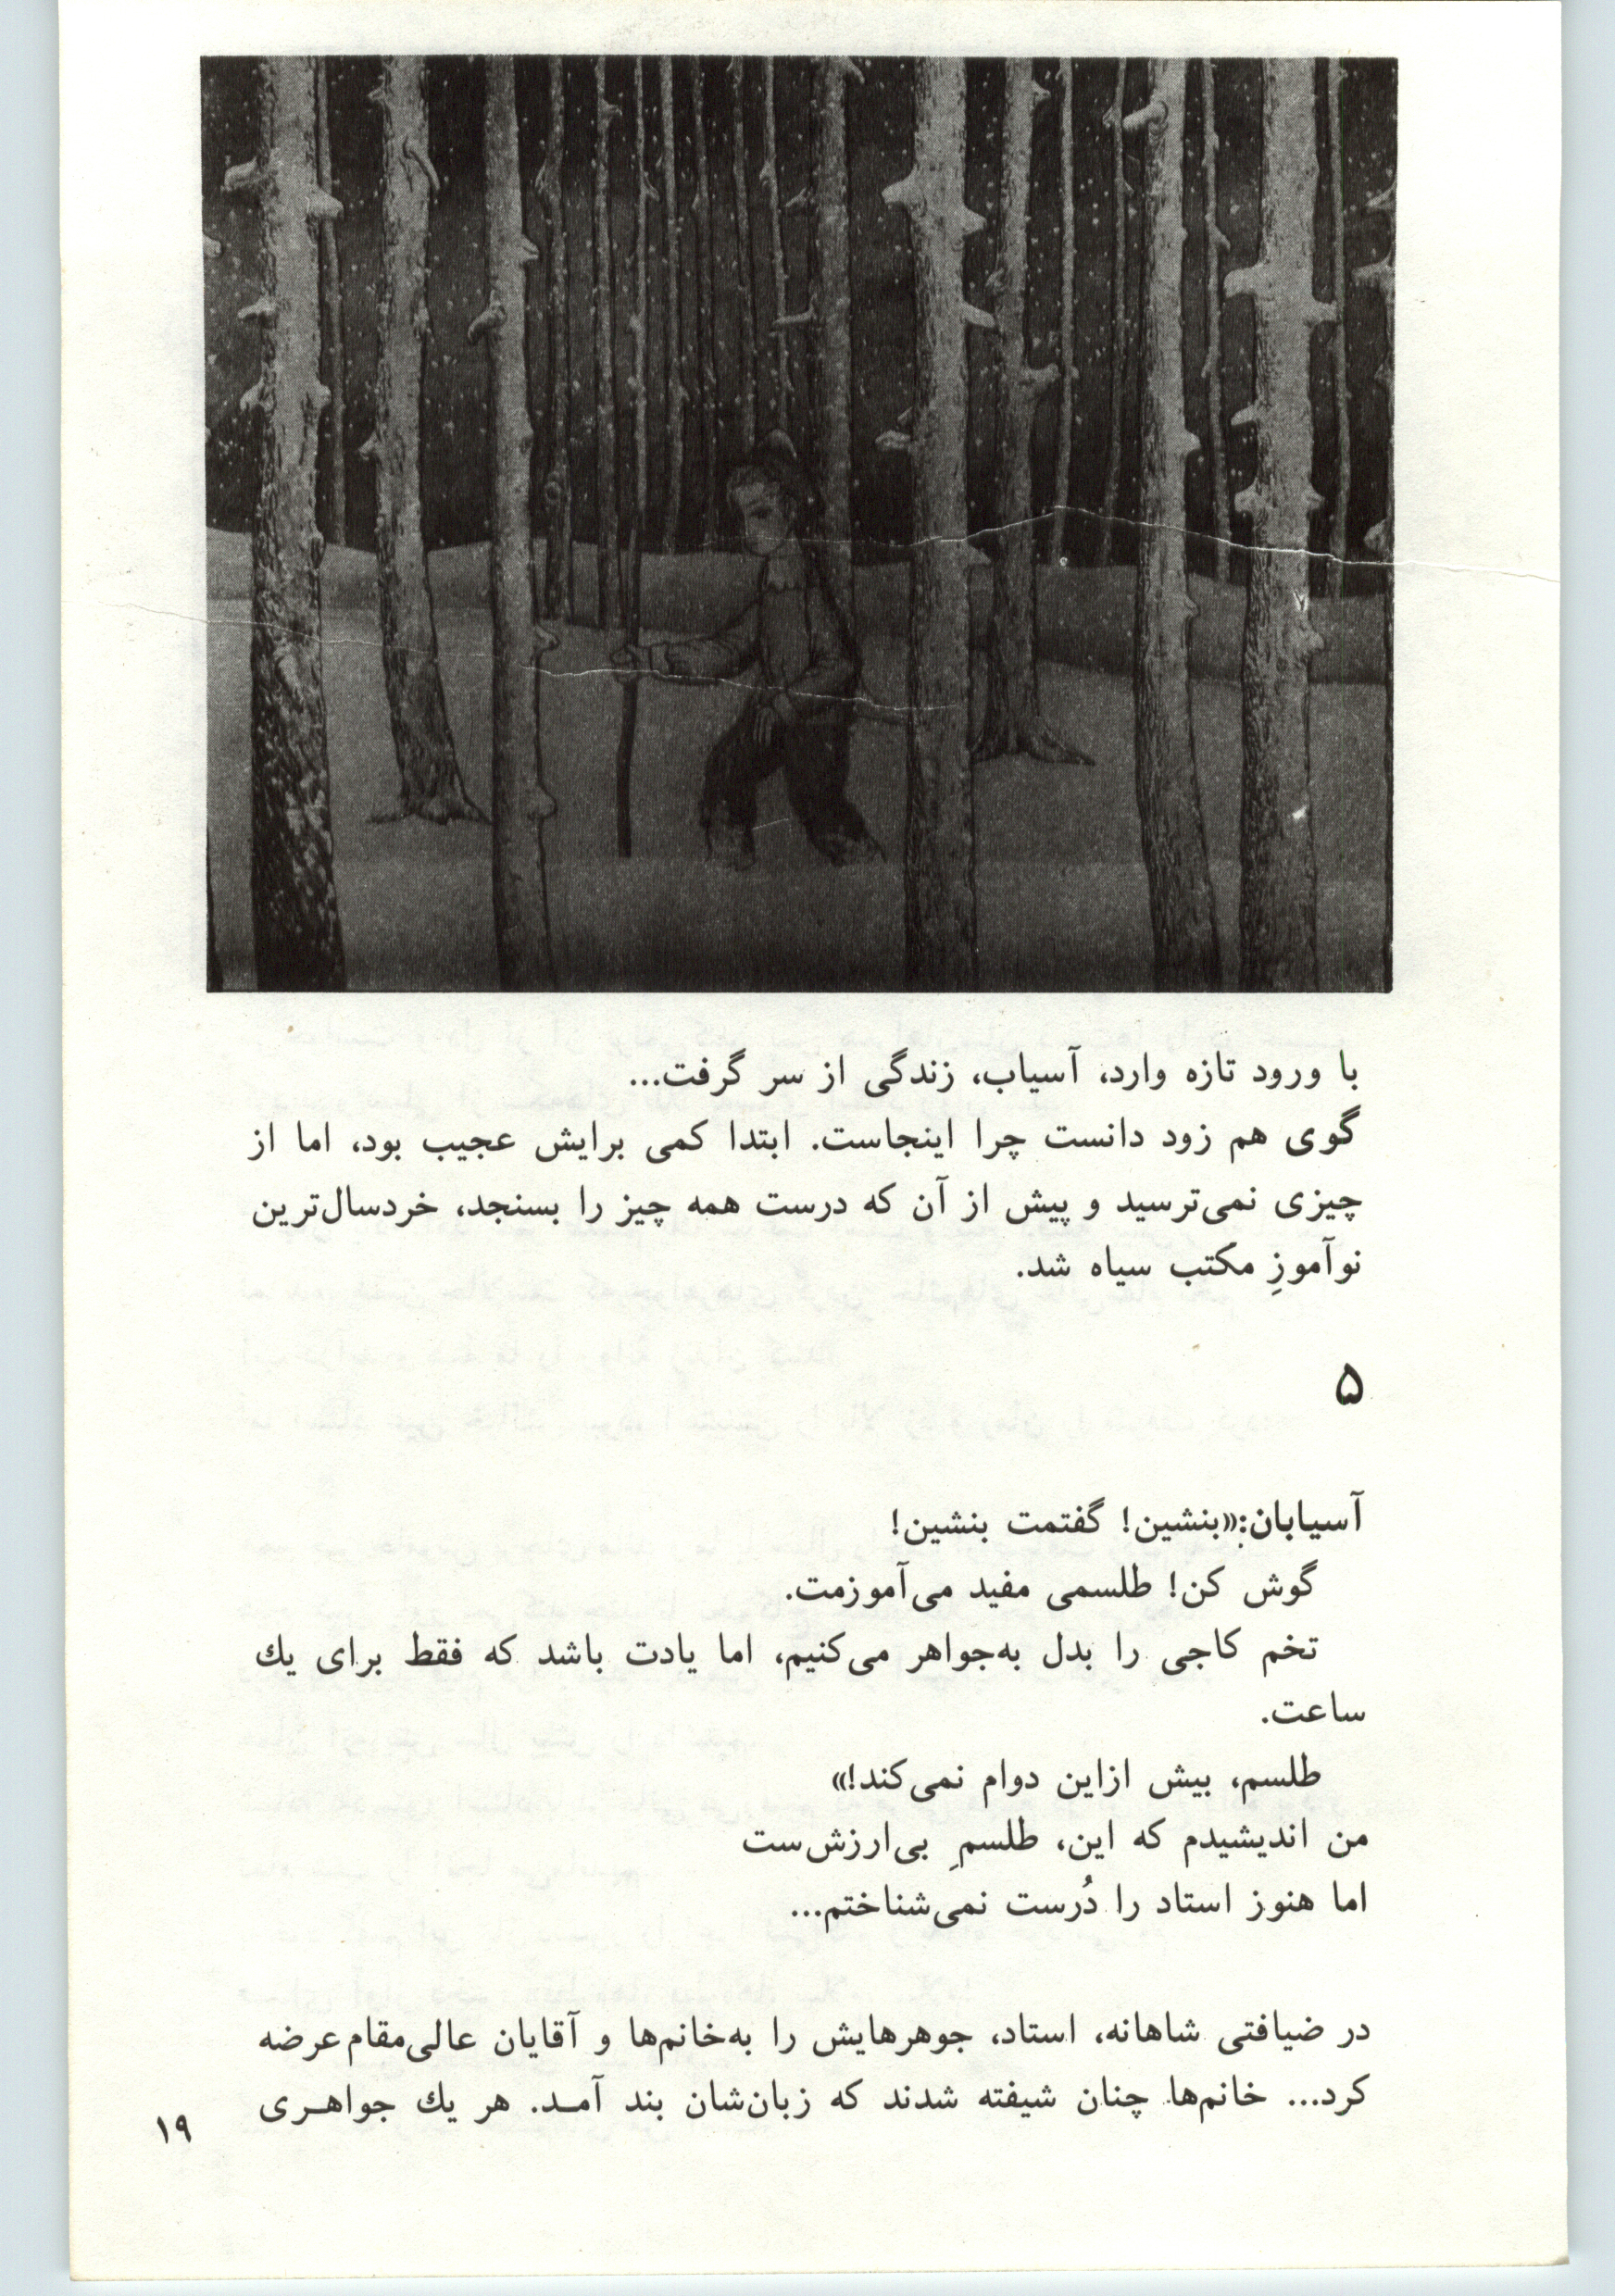 با ورود تازه وارد، آسیاب، زندگی از سر گرفت...
گوی هم زود دانست چرا اینجاست. ابتدا کمی برایش عجیب بود، اما از
چیزی نمی‌ترسید و پیش از آن که درست همه چیز را بسنجد، خردسال‌ترین
نوآموزِ مکتب سیاه شد.
۵
آسیابان:«بنشین! گفتمت بنشین!
گوش کن! طلسمی مفید می‌آموزمت.
تخم کاجی را بدل به‌جواهر می‌کنیم، اما یادت باشد که فقط برای یك
ساعت.
طلسم، بیش ازاین دوام نمی‌کند!»
من اندیشیدم که این، طلسمِ بی‌ارزش‌ست
اما هنوز استاد را دُرست نمی‌شناختم...
در ضیافتی شاهانه، استاد، جوهرهایش را به‌خانم‌ها و آقایان عالی‌مقام عرضه
کرد... خانم‌ها چنان شیفته شدند که زبان‌شان بند آمـد. هر یك جواهـری
۱۹